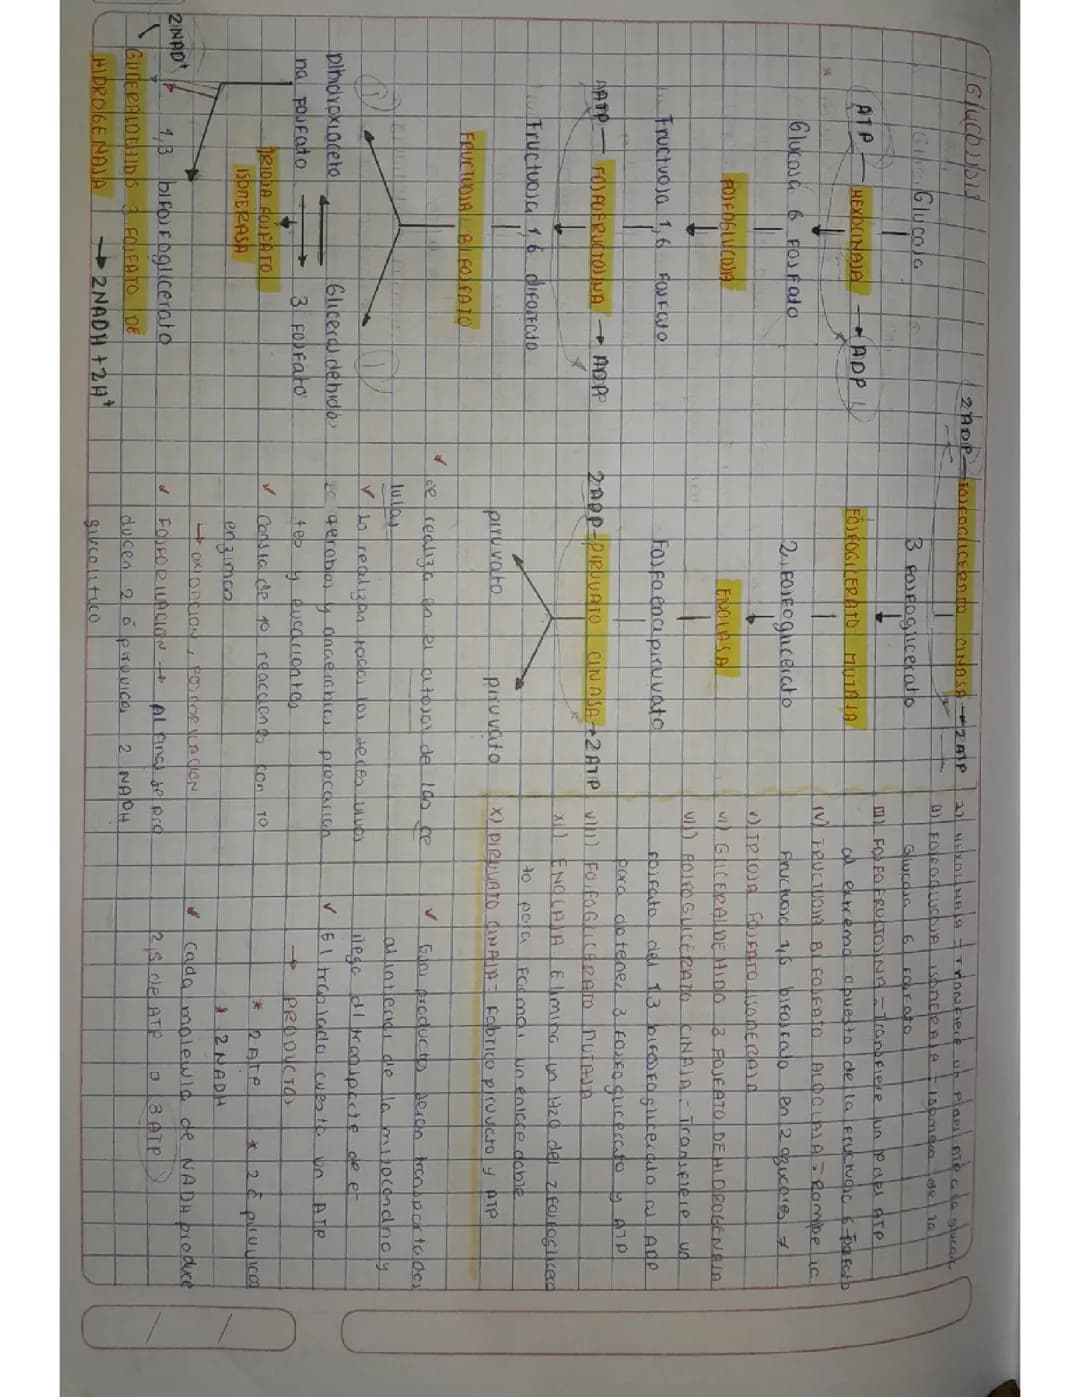 Glucólisis
Glucosa
ATP — HEXOCINASA → ADP
Glucosa 6 fosfato
FOSFOGLUCOSA
Fructuosa 1,6 fosfato
ATP — FOSFOFRUCTOSINA → ADP
Fructuosa 1,6 difosfato
FRUCTUOSA BIFOSFATO
Dihidroxiaceto
na fosfato
Gliceraldehido
3 fosfato
TRIOSA FOSFATO
ISOMERASA
2NAD+
1,3 bifosfoglicerato
GLICERALDEHIDO 3 FOSFATO DE
HIDROGENASA → 2NADH + 2H+
2ADP — FOSFOGLICERATO CINASA → 2ATP
3 fosfoglicerato
FOSFOGLICERATO MUTASA
2,fosfoglicerato
ENOLASA
Fosfoenolpiruvato
2ADP — PIRUVATO CINASA → 2ATP
piruvato piruvato
✓ se realiza en el citosol de las ce
lulas
✓ lo realizan todos los seres vivos
aerobios y anaerobios procarion
tes y eucariontes
✓ Consta de 10 reacciones con 10
enzimas
→ OXIDACION, FERMENTACION
✓ FOSFORILACION → Al final se pro
ducen 2 ó piruvicos 2 NADH
glucolitico
I) HEXOCINASA = Transfiere un P del ATP a la glucosa
II) FOSFOGLUCOSA ISOMERASA = Isomera de la
Glucosa 6 fosfato
III) FOSFOFRUTOSINA = Transfiere un p del ATP
al extremo opuesto de la fructuosa 6-fosfato
IV) FRUCTUOSA BIFOSFATO ALDOLASA = Rompe la
Fructuosa 1,6 bifosfato en 2 azucares
V) TRIOSA FOSFATO ISOMERASA
VI) GLICERALDEHIDO 3 FOSFATO DE HIDROGENASA
VII) FOSFOGLICERATO CINASA - Transfiere un
fosfato del 1,3 bifosfoglicerato al ADP
para obtener 3 fosfoglicerato y ATP
VIII) FOSFOGLICERATO MUTASA
XI) ENOLASA Elimina un H2O del 2 fosfoglicera
to para formar un enlace doble
X) PIRUVATO CINASA = Fabrica piruvato y ATP
✓ productos seran transportados
al interior de la mitocondria y
llega al transporte de e-
✓ El traslado cuesta un ATP
→ PRODUCTOS
* 2 ATP * 2 ó piruvicos
* 2 NADH
✓ Cada molecula de NADH produce
2,5 de ATP o 3 ATP